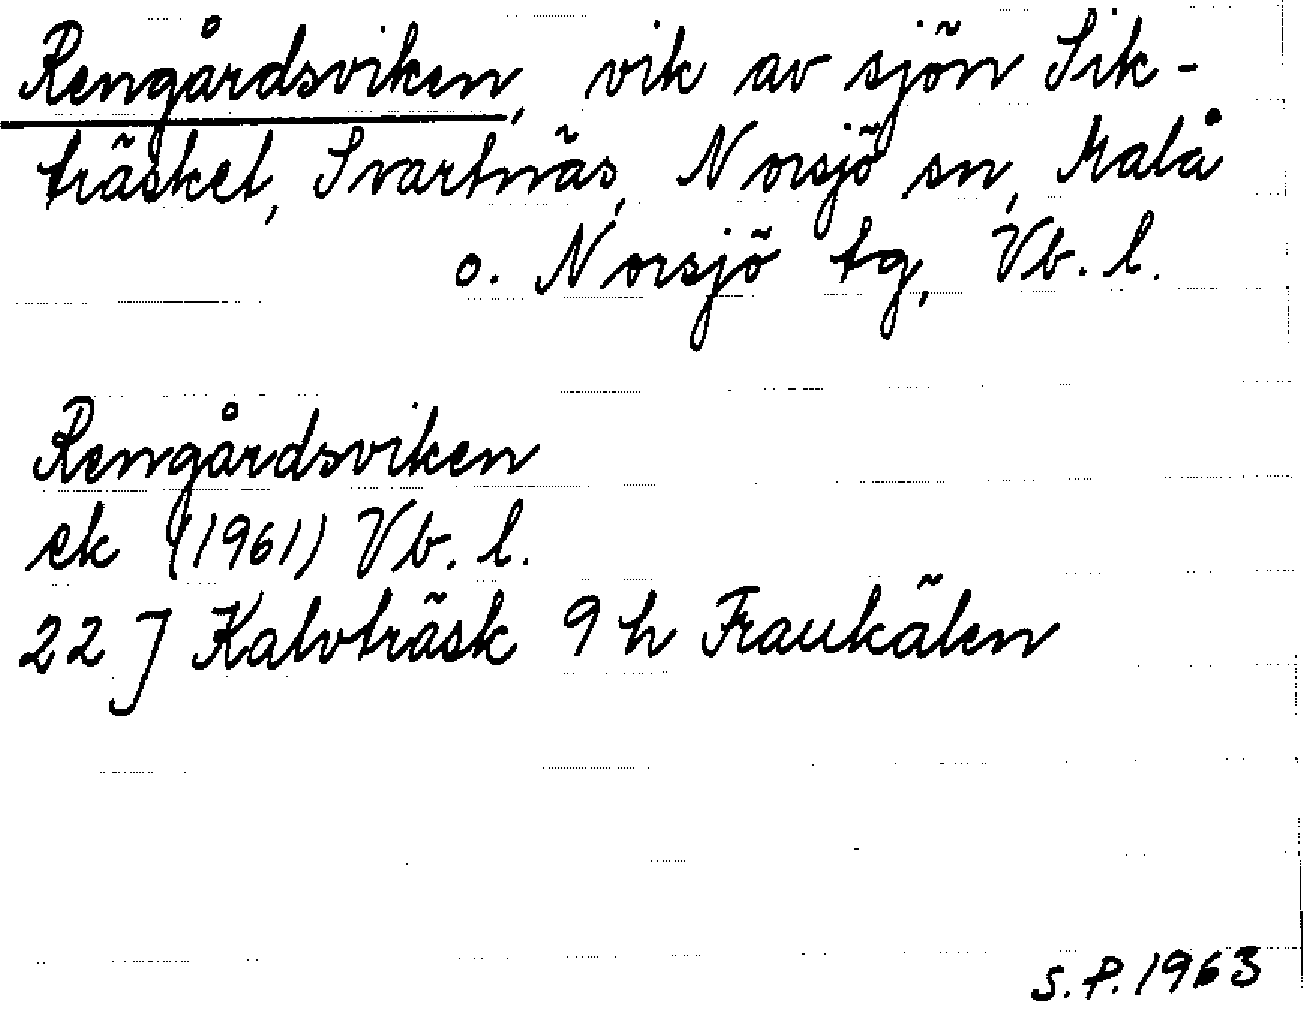 Rengårdsviken, vik av sjön Sik-
träsket, Svartnäs, Norsjö sn, Malå
o. Norsjö tg, Vb. l.
Rengårdsviken
ek (1961) Vb. l.
22 J Kalvträsk 9 h Fraukälen
S.P. 1963